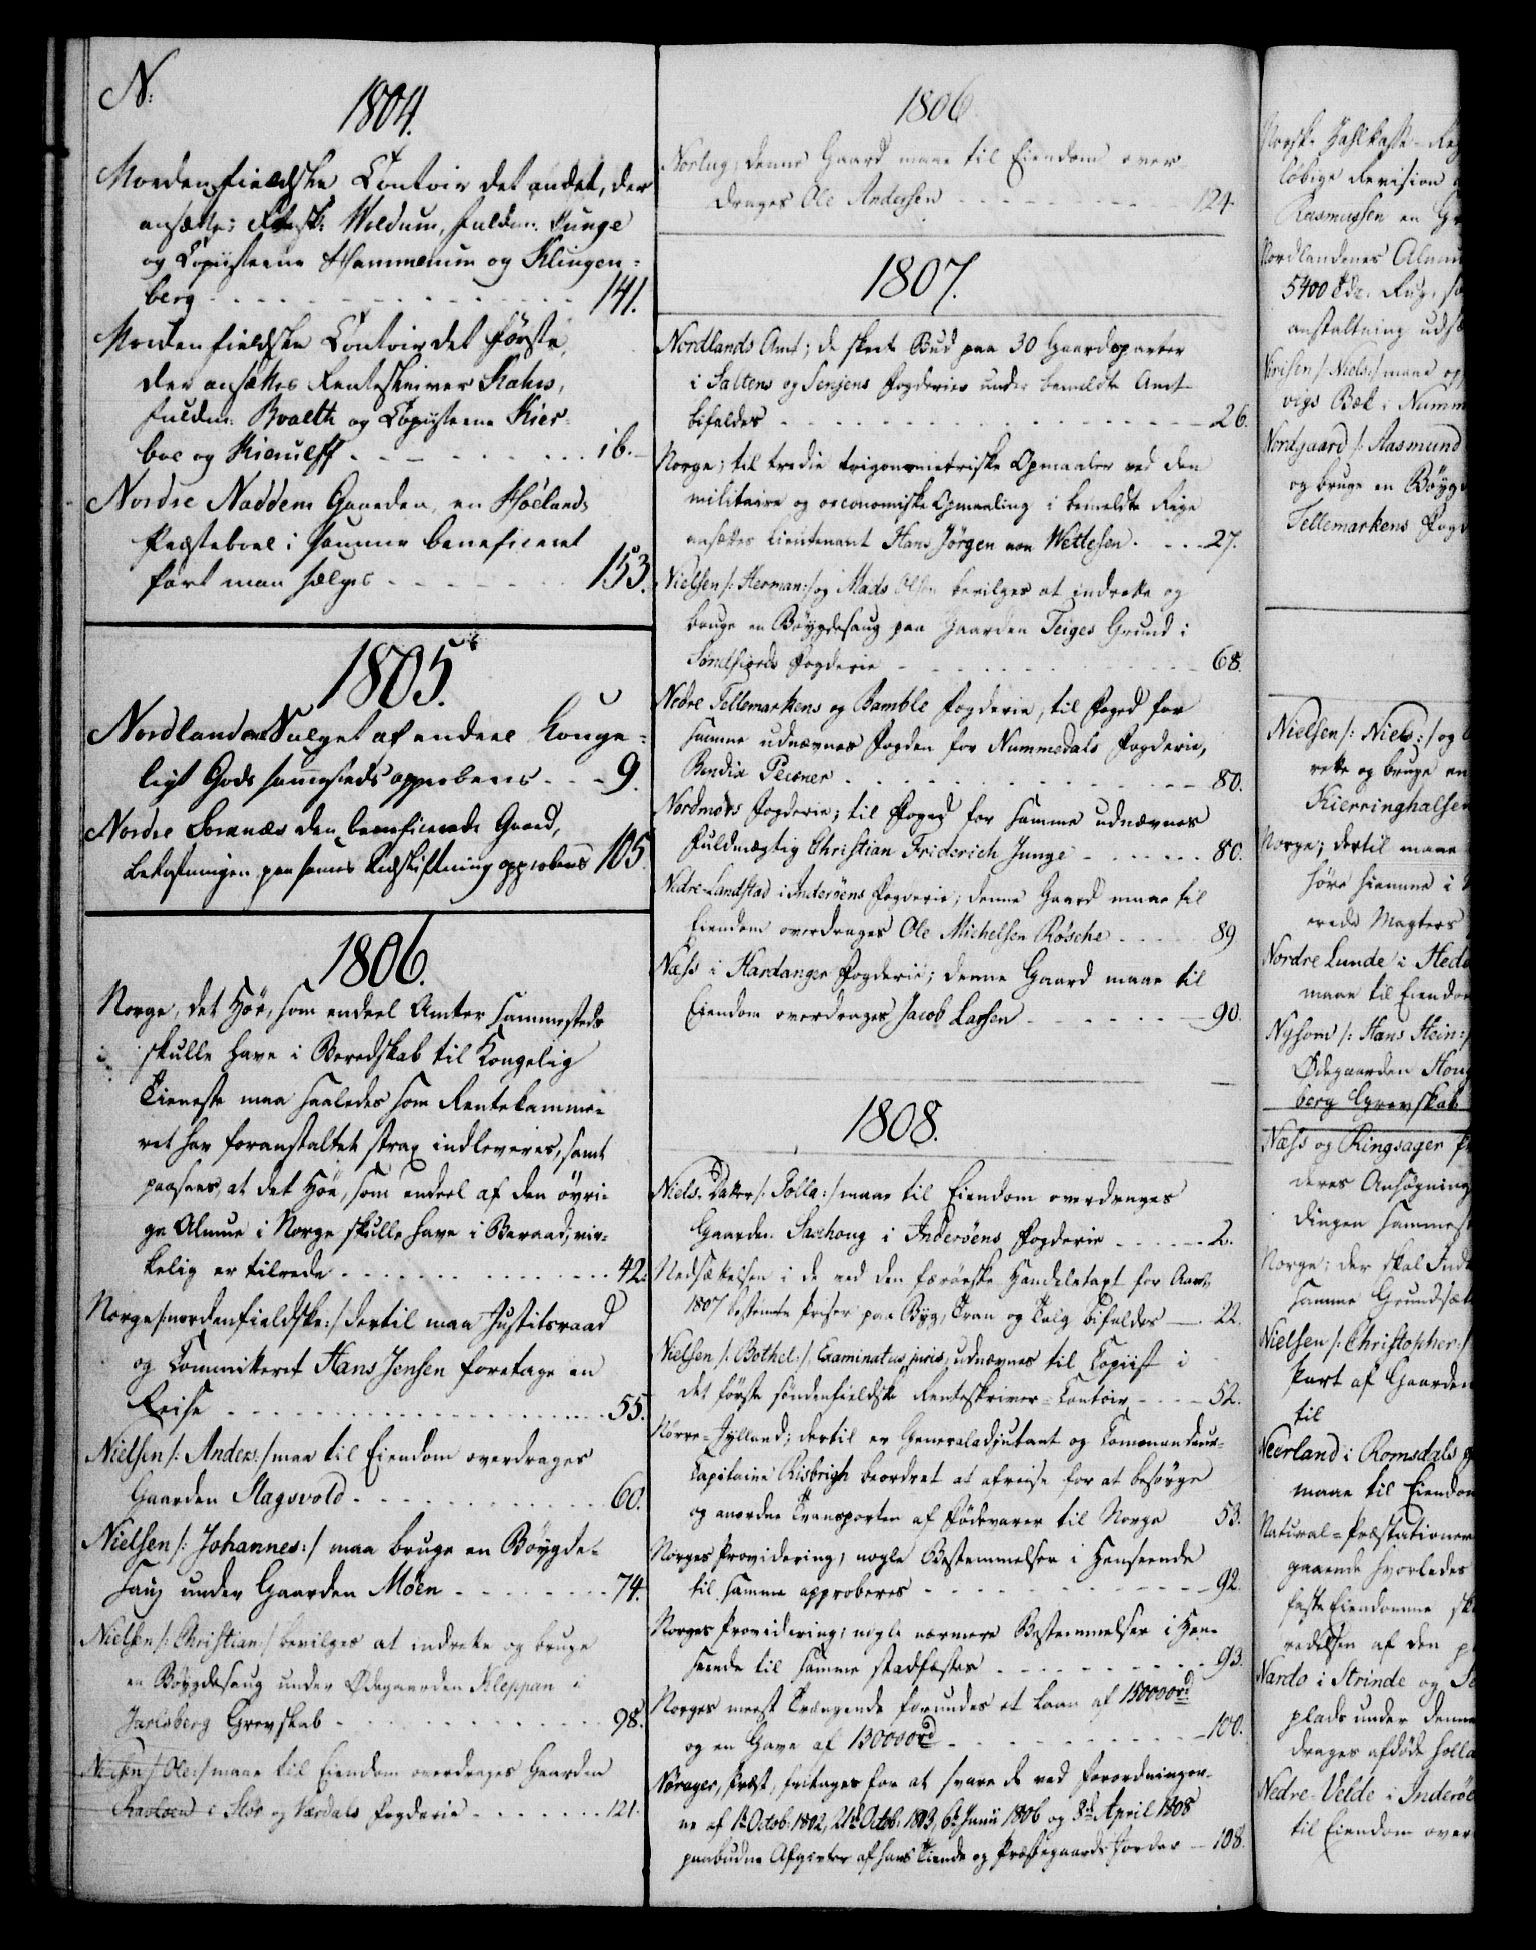 N:
1804.
Nordenfieldske Contoir det andet, der
ansættes Rentesk: Woldum, fuldm: Junge
og Copiisterne Hammerum og Klingen-
berg 141.
Nordenfieldske Contoir det første,
der ansættes Renteskriver Krahn,
fuldm: Bvaelth og Copiisterne Kier-
boe og Kierulff 16.
Nordre Naddem Gaarden, en Høelands
Præsteboel i samme beneficeret
part maa sælges 153.
1805.
Nordlandene Salget af endeel Konge-
ligt Gods sammesteds approberes 9.
Nordre Soenæs den beneficerede Gaard,
bekostningen paa sammes Udskiftning approberes 105
1806.
Norge, det Höe, som endeel Amter sammesteds
skulle have i Beredskab til Kongelig
Tieneste maa saaledes som Rentekamme-
ret har foranstaltet strax indleveres, samt
paasees, at det Höe, som endeel af den övri-
ge Almue i Norge skulle have i Beraad, vir-
kelig er tilrede 42.
Norge /:nordenfieldske:/ dertil maa Justitsraad
og Committeret Hans Jensen foretage en
Reise 55.
Nielsen /: Anders:/ maa til Eiendom overdrages
Gaarden Slagsvold 60.
Nielsen /: Johannes:/ maa bruge en Böygde-
saug under Gaarden Möen 74.
Nielsen /: Christian:/ bevilges at indrette og bruge
en Böygdesaug under Ödegaarden Kleppan i
Jarlsberg Grevskab 98.
Nielsen /: Ole:/ maae til Eiendom overdrages Gaarden
i Stör og Værdals fogderie 121.
1806
Norlug, denne Gaard maae til Eiendom over-
drages Ole Andersen 124.
1807.
Nordlands Amt; de skeete Bud paa 30 Gaardsparter
i Saltens og Senjens fogderier under bemeldte Amt
bifaldes 26.
Norge; til tredie trigonometriske Opmaaler ved den
militaire og oeconomiske Opmaaling i bemeldte Rige
ansættes Lieutenant Hans Jörgen von Wetlesen 27.
Nielsen /: Herman:/ og Mads Olsen bevilges at indrette og
bruge en Böygdesaug paa Gaarden Teiges Grund i
Söndfjords fogderie 68.
Nedre Tellemarkens og Bamble fogderie, til Foged for
samme udnævnes Fogden for Nummedals fogderie,
Bendix Peesner 80.
Nordmörs fogderie; til Foged for samme udnævnes
fuldmægtig Christian Friderich Junge 80.
Nedre-Landstad i Inderöens fogderie; denne Gaard maae til
Eiendom overdrages Ole Michelsen Rösche 89
Næss i Hardanger fogderie; denne Gaard maae til
Eiendom overdrages Jacob Larsen 90.
1808.
Niels-Datter /: Golla:/ maae til Eiendom overdrages
Gaarden Saxhoug i Inderöens fogderie 2.
Nedsættelsen i de ved den færöeske Handelstaxt for Aaret
1807 bestemte priser paa Byg, Tran og Talg bifaldes 22.
Nielsen /: Bothel:/, Examinatus juris, udnævnes til Copiist i
det förste söndenfieldske Renteskriver-Contoir 52.
Nörre-Jylland; dertil er Generaladjutant og Commandeur-
Capitaine Risbrigh beordret at afreise for at besörge
og anordne Transporten af födevarer til Norge 53.
Norges Providering, nogle Bestemmelser i Henseende
til samme approberes 92.
Norges Providering; nogle nærmere Bestemmelser i Hen-
seende til samme stadfæstes 93.
Norges meest Trængende forundes et Laan af 150000rd
og en Gave af 130000rd 100.
Nörager, Præst, fritages for at svare de ved Forordninger-
ne af 1st Octob: 1802, 21de Octob: 1803, 6te Junii 1806 og 8de April 1808
paabudne Afgivter af hans Tiende og Præstegaards Jorder 108.
Norsk Zahlkasse-Reg
löbige Revision
Rasmussen en G
Nordlandenes Almu
5400 Tdr. Rug, s
anstaltning udsæ
Nirisen /: Niels:/ maae op
vigs Bæk i Numm
Nordgaard /: Aasmund
og bruge en Böygd
Tellemarkens fogd
Nielsen /: Niels:/ og
rette og bruge en
Kierringhalsen
Norge; dertil maae
höre hiemme i
erede Magters
Nordre Lunde i Hede
maae til Eiendom
Nysom /: Hans Hein:/
Ödegaarden Houg
berg Grevskab
Næss og Ringsager P
deres Ansögning
dingen sammest
Norge; der skal Ind
samme Grundsæt
Nielsen /: Christopher:/
part af Gaarden
til
Neerland i Romsdals
maae til Eiendom
Natural-Præstationer
gaaende hvorledes
faste Eiendomme sk
redelsen af den p
Nardo i Strinde og Se
plads under denne
drages afdöde Solla
Nedre-Velde i Inderöe
til Eiendom over